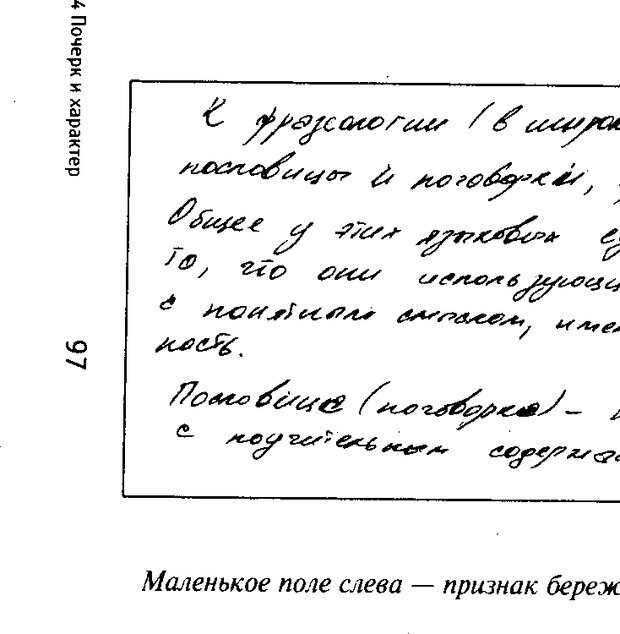 4 Почерк и характер
97
К фразеологии (в широк
пословицы и поговорки,
Общее у этих языковых е
то, что они использующи
с понятным смыслом, име
ность.
Пословица (поговорка) –
с поучительным содержа
Маленькое поле слева — признак береж